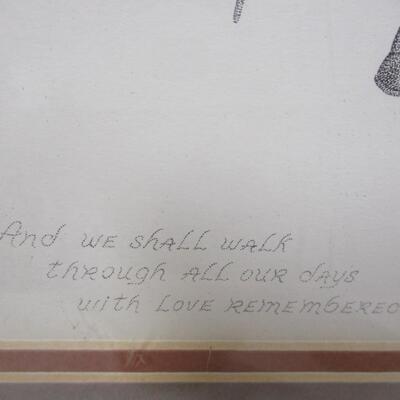 And we shall walk
through all our days
with love remembered